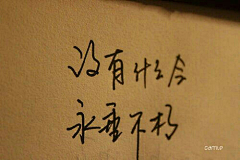 没有什么会
永垂不朽
zamue